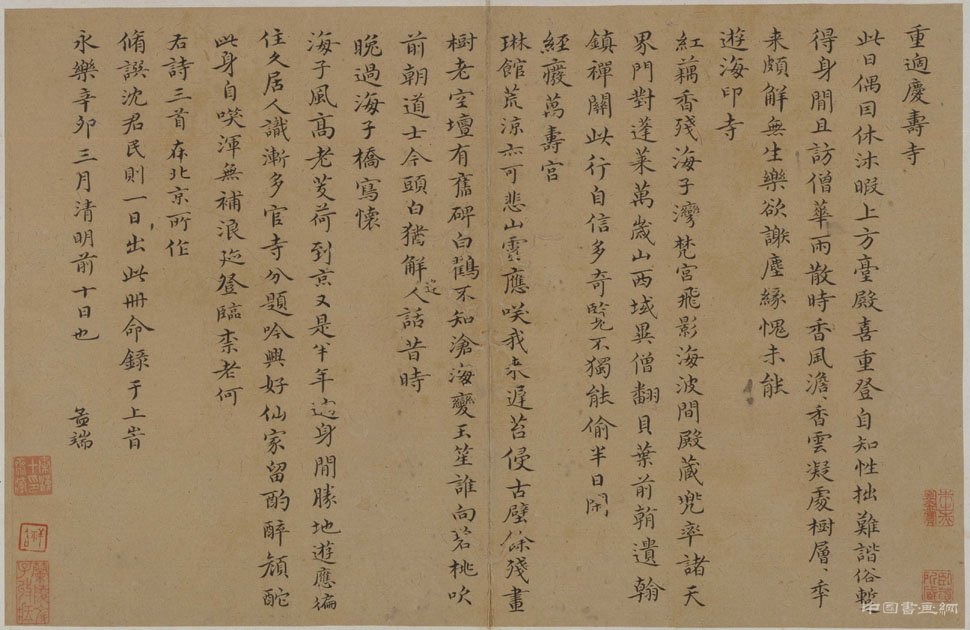 重過慶壽寺
此日偶因休沐暇上方臺殿喜重登自知性拙難諧俗暫
得身閒且訪僧華雨散時香風澹、香雲凝處樹層、年
来頗解無生樂欲謝塵緣愧未能
遊海印寺
紅藕香殘海子灣梵宮飛影海波間殿藏兜率諸天
界門對蓬萊萬歲山西域異僧翻貝葉前朝遺翰
鎮禪關此行自信多奇覽不獨能偷半日閑
經廢萬壽宮
琳館荒涼亦可悲山靈應咲我來遲苔侵古壁餘殘畫
樹老空壇有舊碑白鶴不知滄海變玉笙誰向碧桃吹
前朝道士今頭白猶解人話昔時
逢
晚過海子橋寫懷
海子風高老芰荷到京又是半年過身閒勝地遊應徧
住久居人識漸多官寺分題吟興好仙家留酌醉顏酡
此身自咲渾無補浪迹登臨柰老何
右詩三首在北京所作
脩譔沈君民則一日出此冊命錄于上峕
永樂辛卯三月清明前十日也
孟端
中国書画網